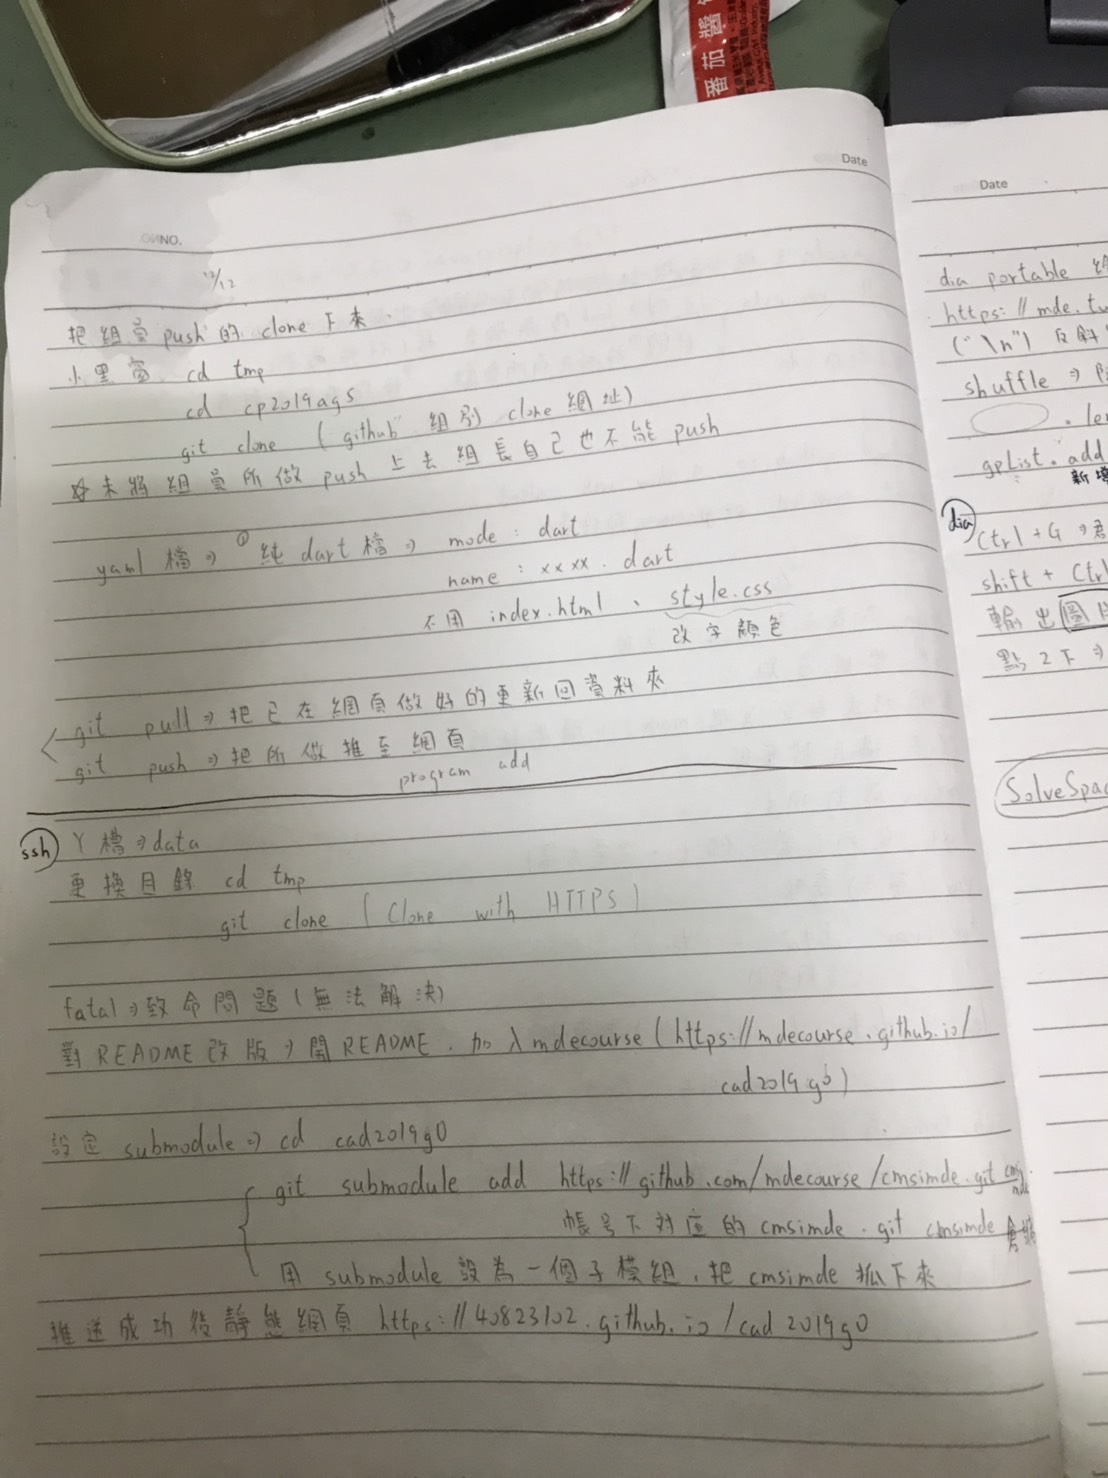 番茄醬
NO.
Date
12/12
把組員 push 的 clone 下來.
小黑窗 cd tmp
cd cp2019ag5
git clone (github 組別 clone 網址)
未將組員所做 push 上去組長自己也不能 push
yaml 檔 ⇒ ① 純 dart 檔 ⇒ mode : dart
name : xxxx . dart
不用 index.html 、 style.css
改字顏色
git pull ⇒ 把已在網頁做好的更新回資料夾
git push ⇒ 把所做推至網頁
program add
ssh Y 檔 ⇒ data
更換目錄 cd tmp
git clone (Clone with HTTPS)
fatal ⇒ 致命問題 (無法解決)
對 README 改版 ⇒ 開 README . 加入 mdecourse (https://mdecourse.github.io/
cad2019g6)
設定 submodule ⇒ cd cad2019g0
git submodule add https://github.com/mdecourse/cmsimde.git cmsimde
帳號下對應的 cmsimde.git cmsimde
用 submodule 設為一個子模組 , 把 cmsimde 抓下來
推送成功後靜態網頁 https://40823102.github.io/cad2019g0
Date
dia portable
https://mde.tw
("\n") 反斜
shuffle ⇒
gpList.add
新增
dia Ctrl + G ⇒
shift + Ctrl
輸出圖片
點2下 ⇒
SolveSpac